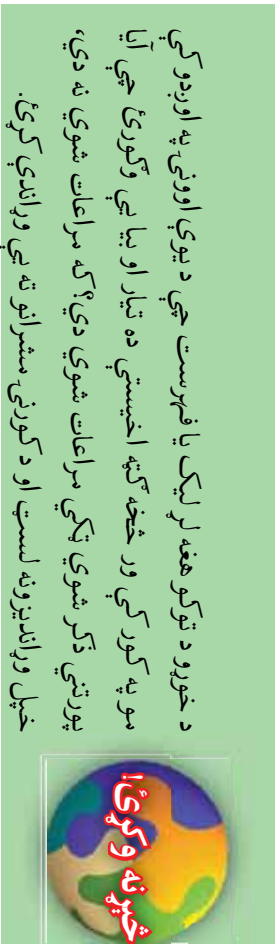 څېړنه وکړئ!
د خوړو د توکو هغه لړ لیک یا فهرست چې د یوې اوونۍ په اوږدو کې
مو په کور کې ور څخه ګټه اخیستې ده تیار او بیا یې وګورئ چې آیا
پورتنې ذکر شوي ټکي مراعات شوي دي؟ که مراعات شوي نه دي،
خپل وړاندیزونه لست او د کورنۍ مشرانو ته یې وړاندې کړئ.